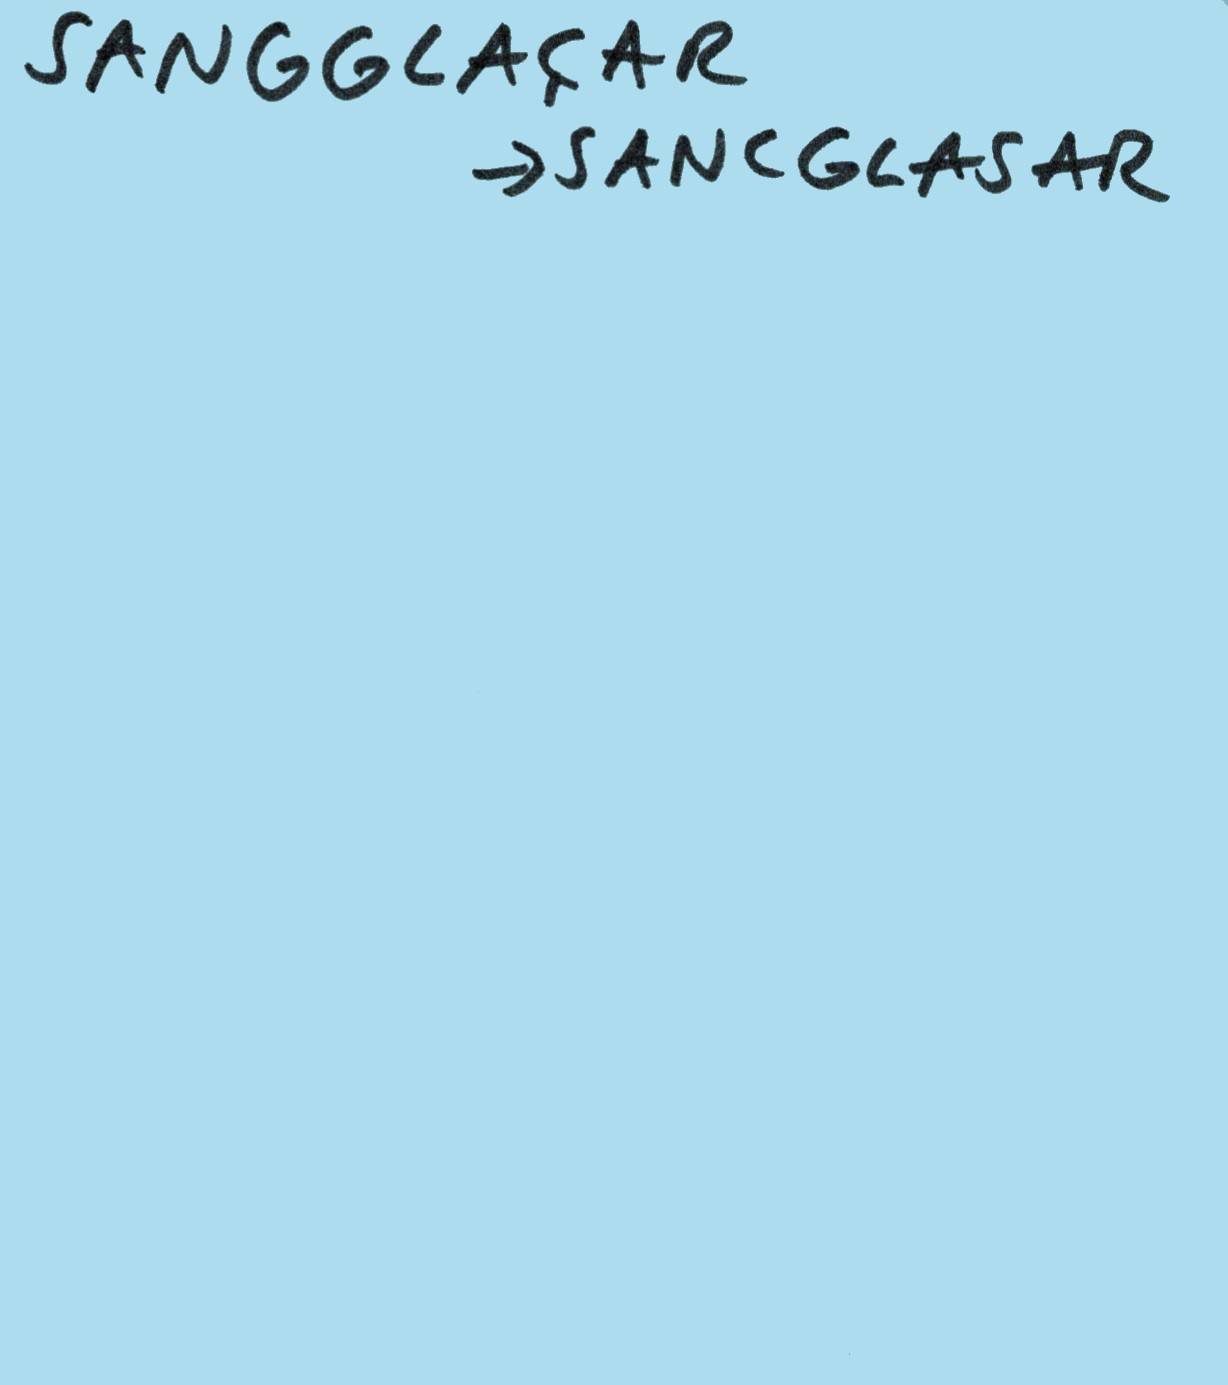 SANGGLAÇAR
→SANCGLASAR